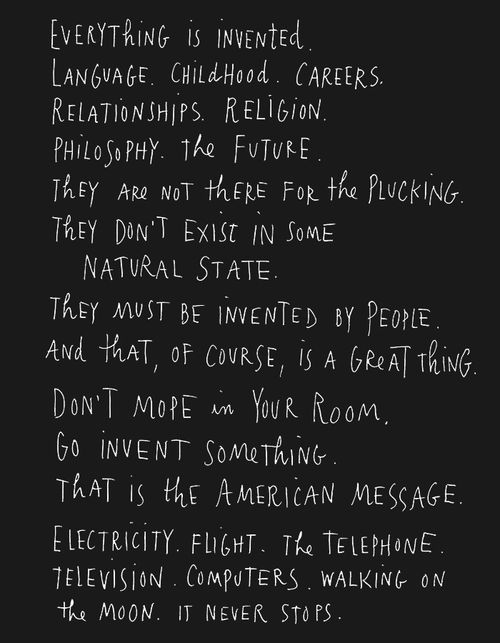 EVERYTHING IS INVENTED.
LANGUAGE. CHILDHOOD. CAREERS.
RELATIONSHIPS. RELIGION.
PHILOSOPHY. the FUTURE.
they ARE NOT thERE FOR the PLUCKING.
they DON'T EXIST IN SOME
NATURAL STATE.
they MUST BE INVENTED BY PEOPLE.
And that, OF COURSE, IS A GREAT thing.
DON'T MOPE in YOUR ROOM.
GO INVENT SOMEthING.
thAT IS thE AMERICAN MESSAGE.
ELECTRICITY. FLIGHT. the TELEPHONE.
TELEVISION. COMPUTERS. WALKING ON
the MOON. IT NEVER STOPS.